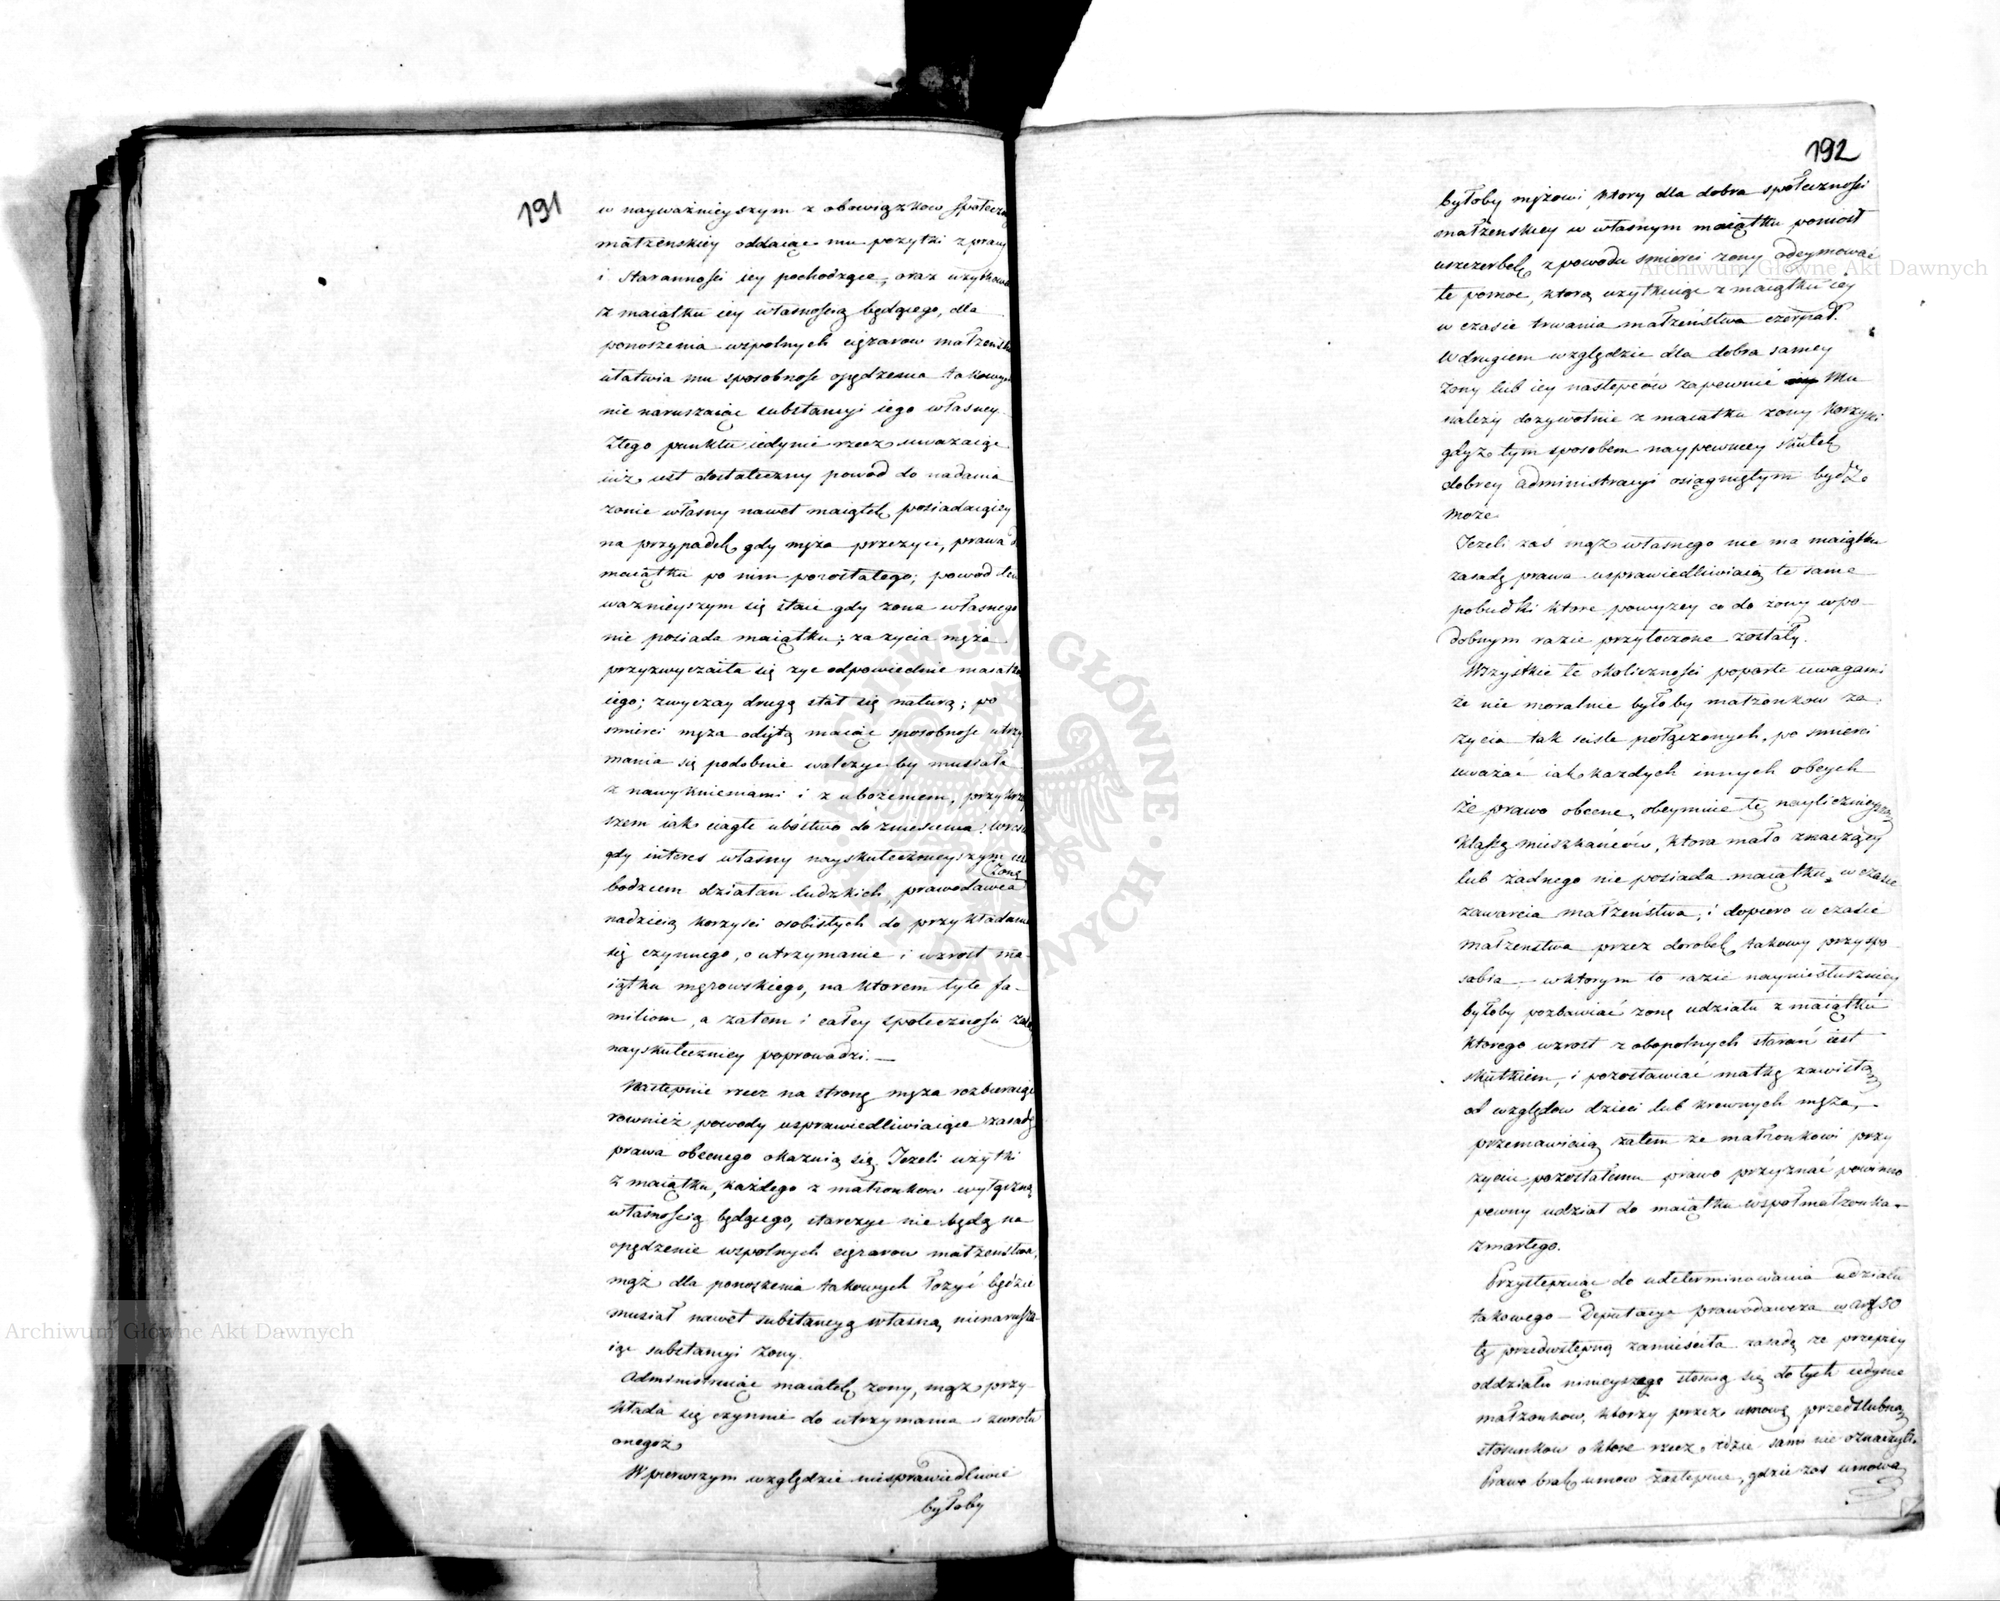 191
w nayważnieyszym z obowiązkow społeczno
małżenskiey oddaiąc mu pożytki z pracy
i Starannosci iey pochodzące, oraz użytkowa
z maiątku iey własnoscią będącego, dla
ponoszenia wspolnych ciężarow małżeńsk
ułatwia mu sposobnosc opędzenia takowych
nie naruszaiąc substancyi iego własney.
Z tego punktu iedynie rzecz uważaiąc
iuż iest dostateczny powod do nadania
żonie własny nawet maiątek posiadaiącey
na przypadek gdy męża przeżyie, prawa d
maiątku po nim pozostałego; powod ten
ważnieyszym się staie gdy żona własnego
nie posiada maiątku; za życia męża
przyzwyczaiła się żyć odpowiednie maiątko
iego; zwyczay drugą stał się naturą; po
smierci męża odiętą maiąc sposobnosc utrzy
mania się podobnie walczyć by musiała
z nawyknieniami i z ubożeniem, przykrzey
szem iak ciągłe ubóstwo do zniesienia: wresz
gdy interes własny nayskutecznieyszym iest
bodzcem działan ludzkich, prawodawca żonę
nadzieią korzysci osobistych do przykładania
się czynnego, o utrzymanie i wzrost ma-
iątku mężowskiego, na ktorem tyle fa-
miliom, a zatem i całey społecznosci zale
nayskuteczniey poprowadzi. —
Następnie rzecz na stronę męża rozbieraiąc
rownież powody usprawiedliwiaiące zasadę
prawa obecnego okazuią się. Jeżeli użytki
z maiątku, każdego z małżonkow wyłączną
własnoscią będącego, starczyć nie będą na
opędzenie wspolnych ciężarow małżenstwa,
mąż dla ponoszenia takowych łożyć będzie
musiał nawet substancyą własną nienarusza-
iąc substancyi żony.
Administruiąc maiątek żony, mąż przy-
kłada się czynnie do utrzymania i wzrostu
onegoż
W pierwszym względzie niesprawiedliwie
byłoby
192
byłoby mężowi, ktory dla dobra społecznosci
małżenskiey w własnym maiątku poniosł
uszczerbek z powodu smierci żony odeymować
te pomoc, ktorą użytkuiąc z maiątku iey
w czasie trwania małżeństwa czerpał.
W drugiem względzie dla dobra samey
żony lub iey następców zapewnić Mu
należy dożywotnie z maiątku żony korzysci
gdyż tym sposobem naypewniey skutek
dobrey administracyi osiągniętym bydź
może
Jeżeli zaś mąż własnego nie ma maiątku
zasadę prawa usprawiedliwiaią te same
pobudki ktore powyżey co do żony w po-
dobnym razie przytoczone zostały.
Wszystkie te okolicznosci poparte uwagami
że nie moralnie byłoby małżonkow za
życia tak sciśle połączonych, po smierci
uważać iak każdych innych obcych
że prawo obecne obeymuie tę nayliczniejszą
klassę mieszkańców, ktora mało znaczący
lub żadnego nie posiada maiątku, w czasie
zawarcia małżeństwa, i dopiero w czasie
małżenstwa przez dorobek takowy przyspo-
sabia — w ktorym to razie nayniesłuszniey
byłoby pozbawiać żonę udziału z maiątku
ktorego wzrost z obopolnych starań iest
skutkiem, i pozostawiać matkę zawisłą
od względow dzieci lub krewnych męża, —
przemawiaią zatem że małżonkowi przy
życiu pozostałemu prawo przyznać powinno
pewny udział do maiątku wspołmałżonka
zmarłego.
Przystępuiąc do udeterminowania udziału
takowego — Deputacya prawodawcza w art 50
tę przedwstępną zamieściła zasadę że przepisy
oddziału ninieyszego stosuią się do tych iedynie
małżonkow, ktorzy przez umowę przedślubną
stosunkow o ktore rzecz idzie sami nie oznaczyli.
Prawo brak umow zastępuie, gdzie zas umowa
Archiwum Główne Akt Dawnych
Archiwum Główne Akt Dawnych
ARCHIWUM GŁÓWNE AKT DAWNYCH